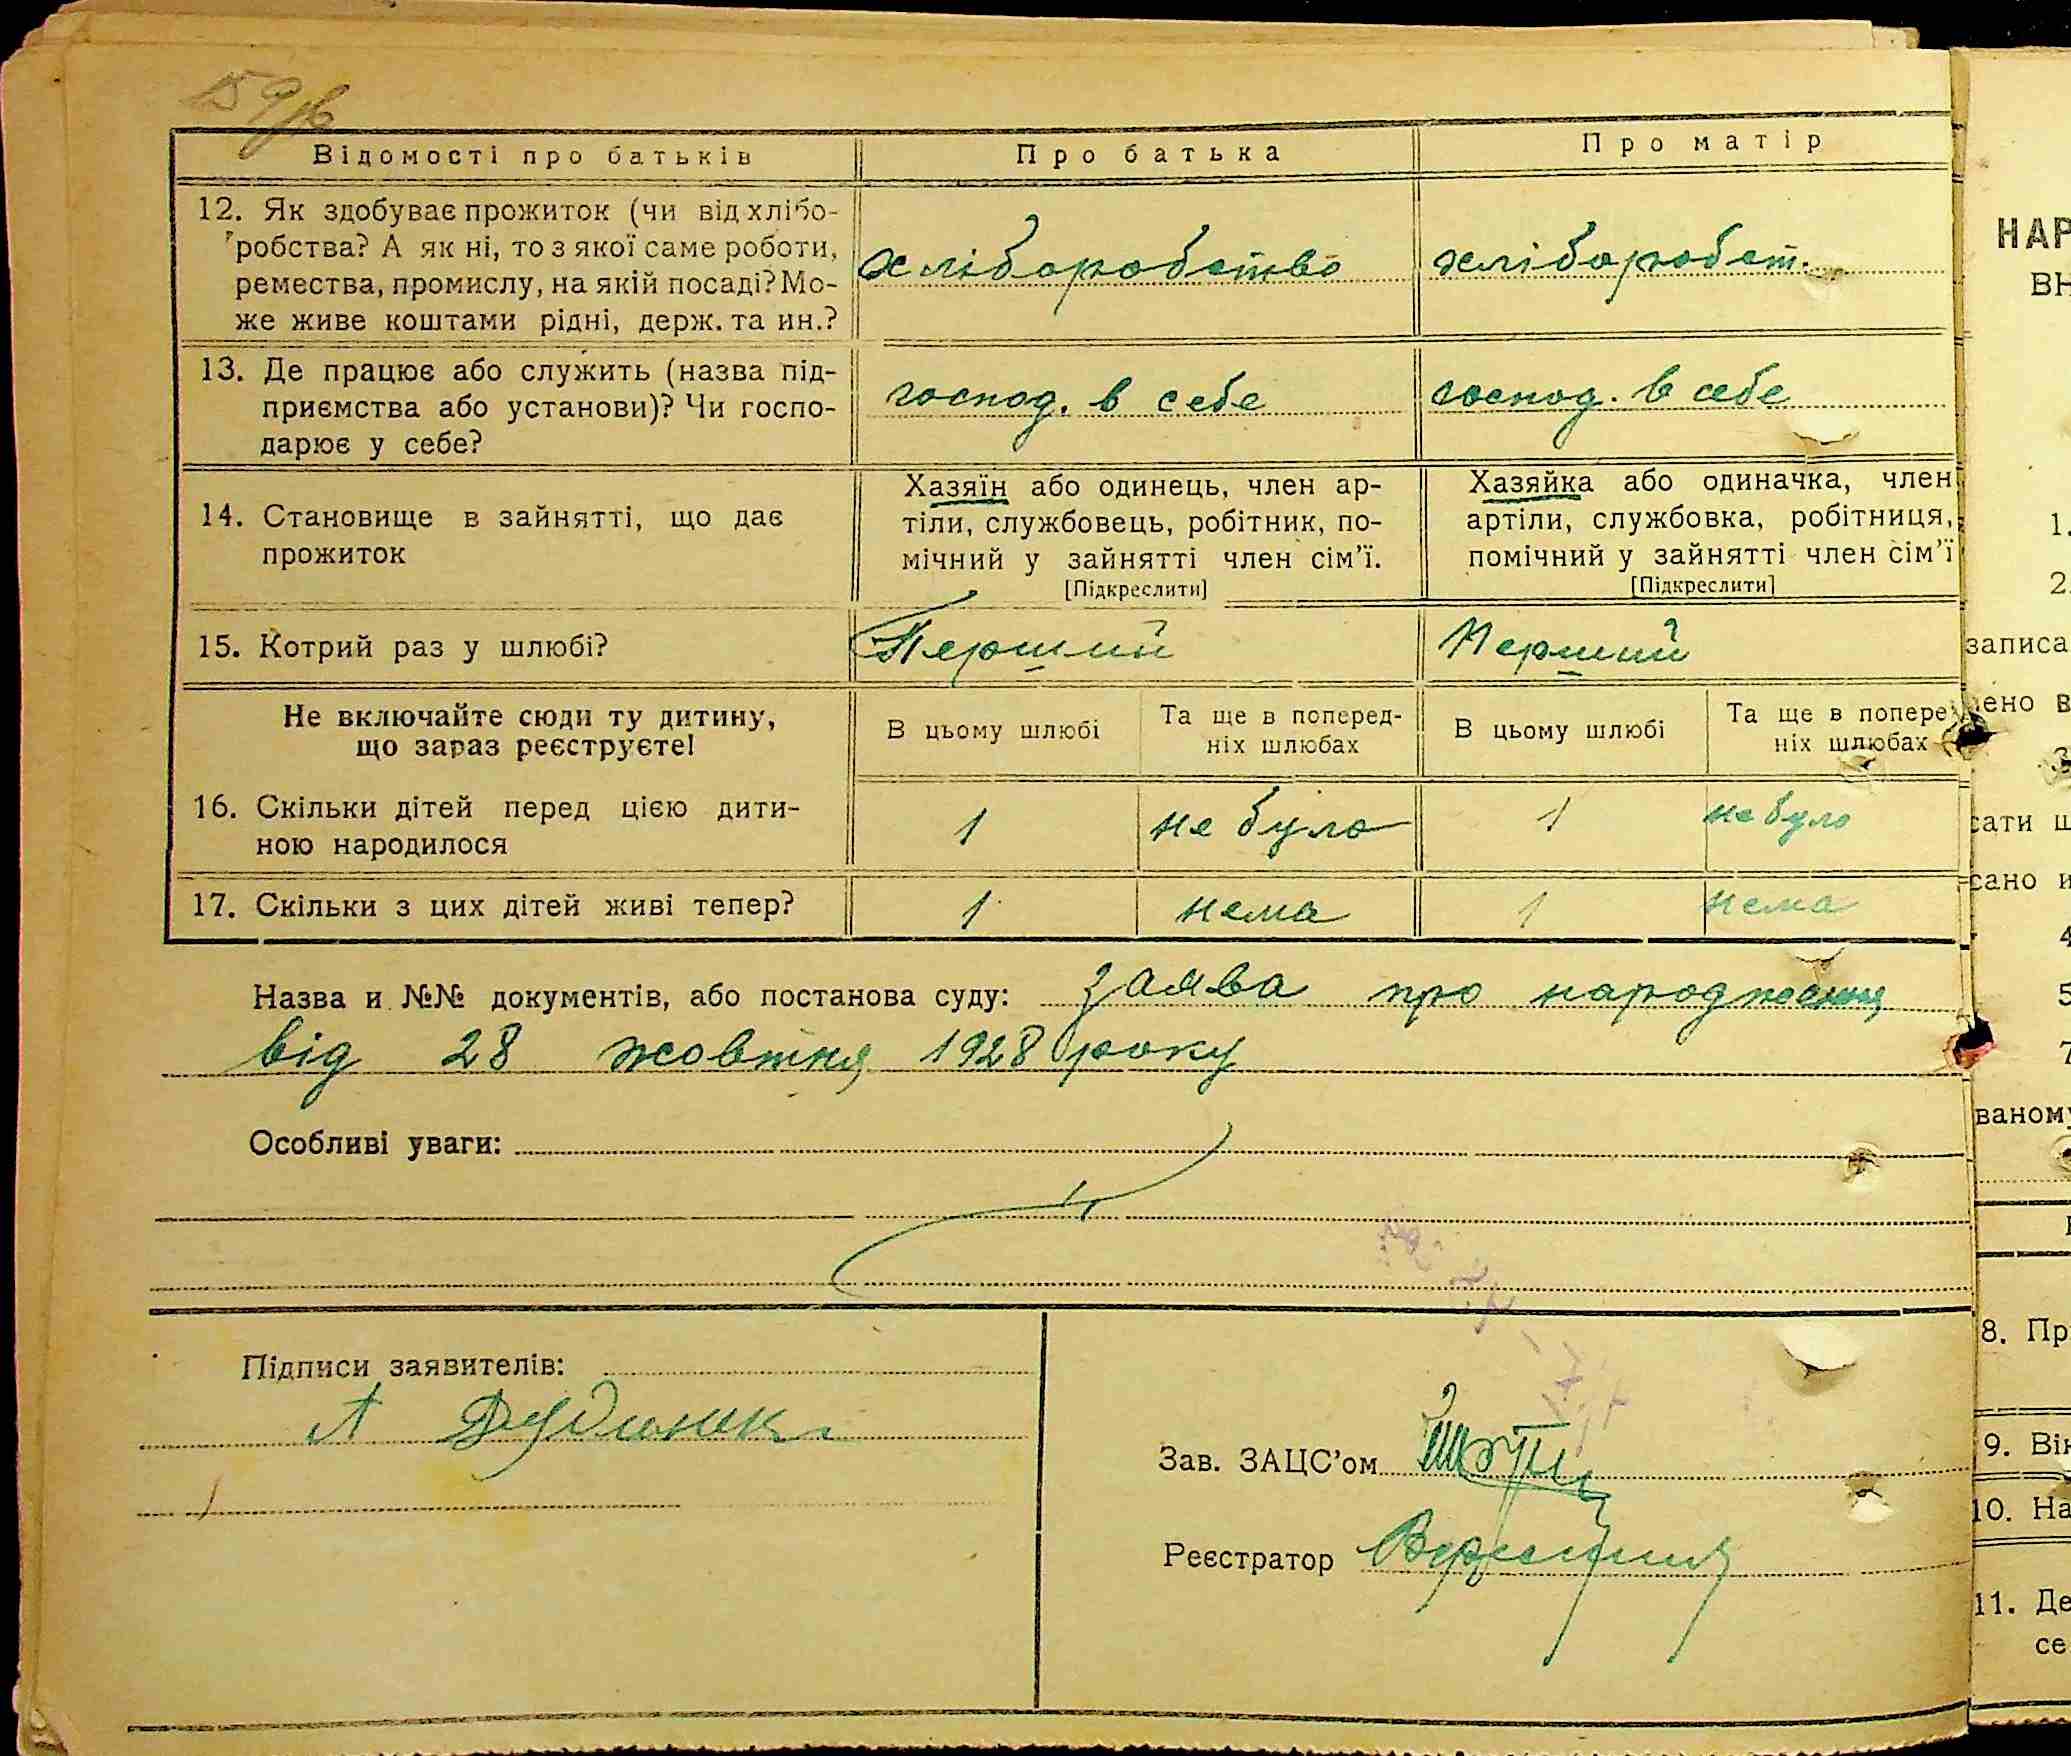 Відомості про батьків
Про батька
Про матір
12. Як здобуває прожиток (чи від хлібо-
робства? А як ні, то з якої саме роботи,
ремества, промислу, на якій посаді? Мо-
же живе коштами рідні, держ. та ин.?
хліборобство
хліборобст.
13. Де працює або служить (назва під-
приємства або установи)? Чи госпо-
дарює у себе?
господ. в себе
господ. в себе
14. Становище в зайнятті, що дає
прожиток
Хазяїн або одинець, член ар-
тіли, службовець, робітник, по-
мічний у зайнятті член сім'ї.
[Підкреслити]
Хазяйка або одиначка, член
артіли, службовка, робітниця,
помічний у зайнятті член сім'ї
[Підкреслити]
15. Котрий раз у шлюбі?
Перший
Перший
Не включайте сюди ту дитину,
що зараз реєструєте!
В цьому шлюбі
Та ще в поперед-
ніх шлюбах
В цьому шлюбі
Та ще в попере
ніх шлюбах
16. Скільки дітей перед цією дити-
ною народилося
1
не було
1
не було
17. Скільки з цих дітей живі тепер?
1
нема
1
нема
Назва и №№ документів, або постанова суду: заява про народження
від 28 жовтня 1928 року
Особливі уваги:
Підписи заявителів:
Зав. ЗАЦС'ом
Реєстратор
НАР
ВН
1.
2.
записа
ено в
3
сати ш
сано и
4
5
7
ваному
8. Пр
9. Він
10. На
11. Де
се